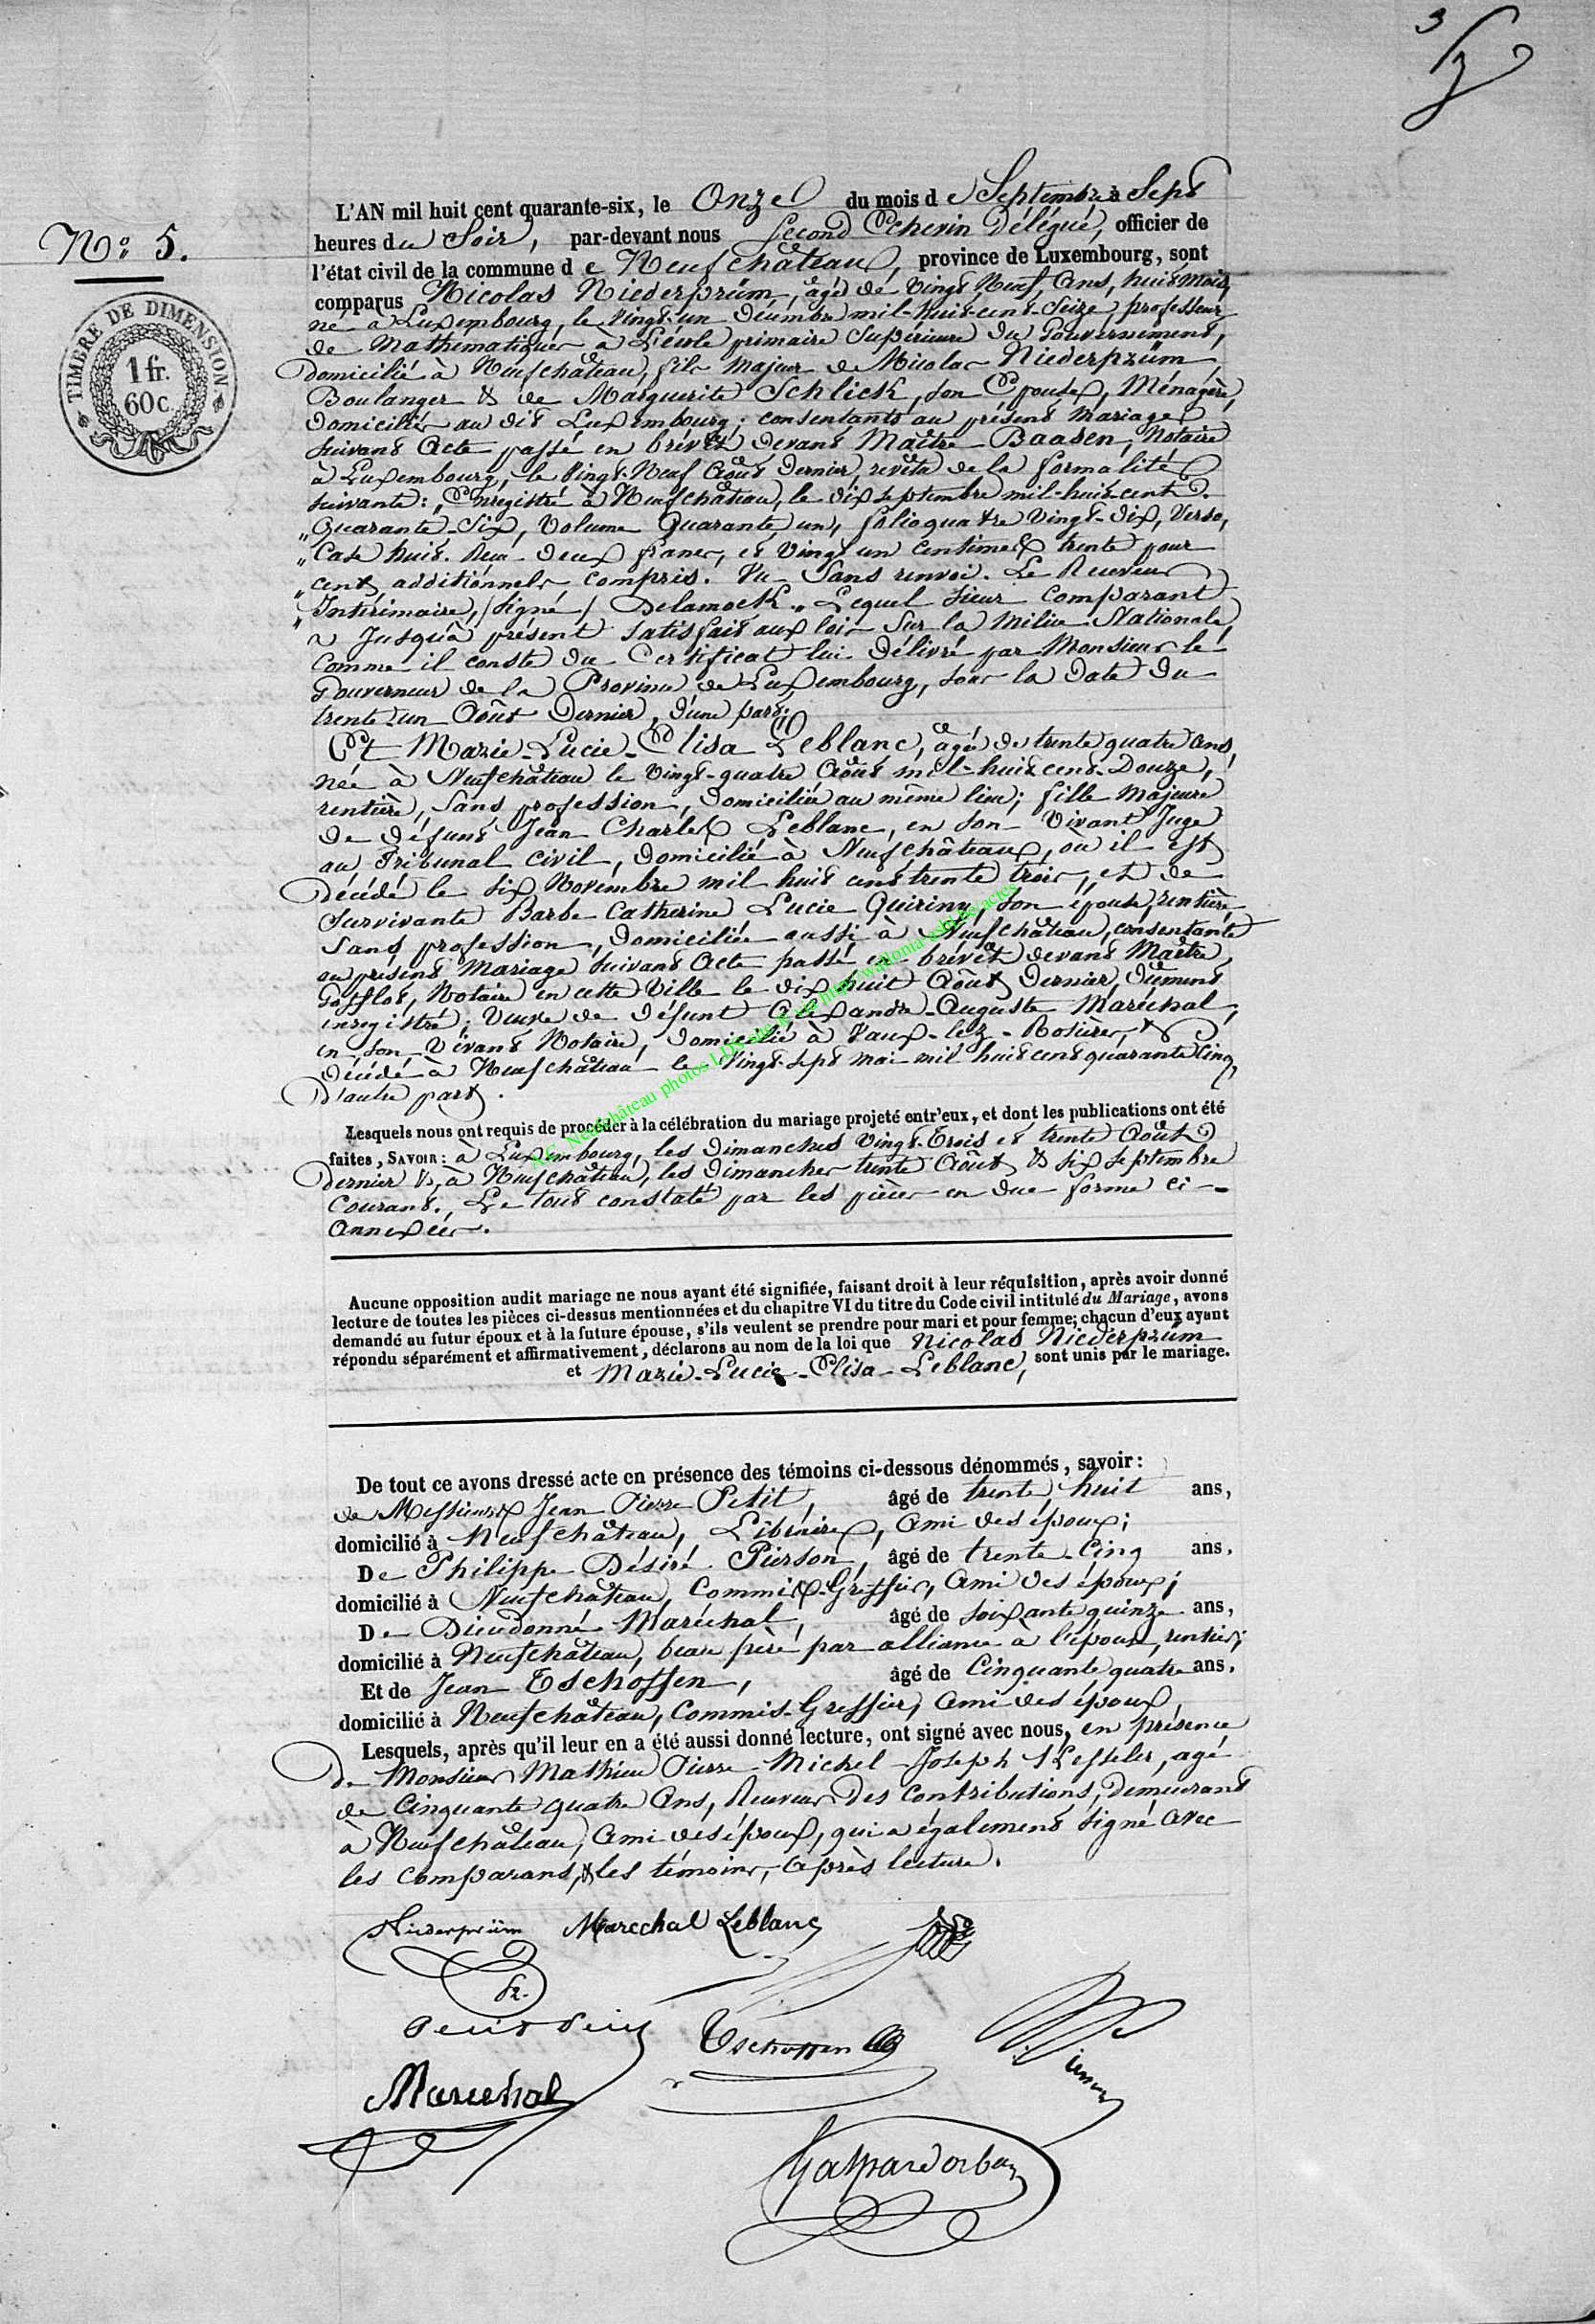 N.º 5.
TIMBRE DE DIMENSION.
1 fr.
60 c.
L'AN mil huit cent quarante-six, le Onze du mois de Septembre à Sept
heures du Soir, par-devant nous Second Echevin Délégué, officier de
l'état civil de la commune de Neufchâteau, province de Luxembourg, sont
comparus Nicolas Niederprüm, âgé de Vingt Neuf Ans, huit Mois,
né à Luxembourg, le Vingt-un Décembre mil-huit-cent-Seize, professeur
de Mathématiques à L'école primaire Supérieure du Gouvernement,
Domicilié à Neufchâteau, fils Majeur de Nicolas Niederprüm,
Boulanger & de Marguerite Schlick, son Epouse, Ménagère,
Domiciliés au dit Luxembourg; consentants au présent Mariage
Suivant Acte passé en brévet devant Maître Baasen, Notaire
à Luxembourg, le Vingt-Neuf Août Dernier, revêtu de la formalité
suivante: „Enregistré à Neufchâteau, le dix septembre mil-huit-cent
„Quarante-Six, Volume Quarante un, folio quatre Vingt-Dix, Verso,
„Case huit. Reçu deux francs, et Vingt un Centimes trente pour
„cent additionnels compris. Vu Sans renvoi. Le Receveur
„Intérimaire, /signé/ Delamock„ Lequel Sieur Comparant
a Jusqu'à présent satisfait aux lois Sur la Milice Nationale,
Comme il conste du Certificat lui Délivré par Monsieur le
Gouverneur de la Province de Luxembourg, sous la Date du
trente-un Août Dernier, d'une part;
Et Marie-Lucie-Elisa Leblanc, âgée de trente quatre ans,
née à Neufchâteau le Vingt-quatre Août mil-huit cent-Douze,
rentière, Sans profession, Domiciliée au même lieu; fille Majeure
de Défunt Jean Charles Leblanc, en son Vivant Juge
au Tribunal Civil, Domicilié à Neufchâteau, où il est
Décédé le Six Novembre mil huit cent trente trois, et de
Survivante Barbe Catherine Lucie Quiriny, son épouse, rentière
Sans profession, Domiciliée aussi à Neufchâteau, consentante
au présent Mariage Suivant Acte passé en brévet devant Maître
Gofflot, Notaire en cette Ville le dix huit Août Dernier, Dûment
enregistré; Veuve de Défunt Alexandre-Auguste Maréchal,
en son Vivant Notaire, Domicilié à Vaux-lez-Rosières, &
Décédé à Neufchâteau le Vingt-Sept Mai mil huit cent quarante cinq,
D'autre part.
Lesquels nous ont requis de procéder à la célébration du mariage projeté entr'eux, et dont les publications ont été
faites, SAVOIR: à Luxembourg, les Dimanches Vingt-Trois et trente Août
Dernier &, à Neufchâteau, les Dimanches trente Août & six septembre
Courant. Le tout constaté par les pièces en due forme ci-
Annexées.
Aucune opposition audit mariage ne nous ayant été signifiée, faisant droit à leur réquisition, après avoir donné
lecture de toutes les pièces ci-dessus mentionnées et du chapitre VI du titre du Code civil intitulé du Mariage, avons
demandé au futur époux et à la future épouse, s'ils veulent se prendre pour mari et pour femme; chacun d'eux ayant
répondu séparément et affirmativement, déclarons au nom de la loi que Nicolas Niederprüm
et Marie-Lucie-Elisa-Leblanc, sont unis par le mariage.
De tout ce avons dressé acte en présence des témoins ci-dessous dénommés, savoir:
de Messieurs Jean Pierre Petit, âgé de trente huit ans,
domicilié à Neufchâteau, Libraire, Ami des époux;
De Philippe Désiré Pierson, âgé de trente-Cinq ans.
domicilié à Neufchâteau, Commis-Greffier, Ami des époux;
De Dieudonné Maréchal, âgé de soixante quinze ans,
domicilié à Neufchâteau, beau père par alliance à l'épouse, rentier;
Et de Jean Tschoffen, âgé de Cinquante quatre ans.
domicilié à Neufchâteau, Commis-Greffier, Ami des époux,
Lesquels, après qu'il leur en a été aussi donné lecture, ont signé avec nous, en présence
De Monsieur Mathieu Pierre-Michel-Joseph Kessler, agé
de Cinquante quatre Ans, Receveur des Contributions, Demeurant
à Neufchâteau, Ami des époux, qui a également signé avec
les Comparans, & les témoins, Après lecture.
Niederprüm Marechal Leblanc
Tschoffen
Marechal
A.C. Neufchâteau photos LDS